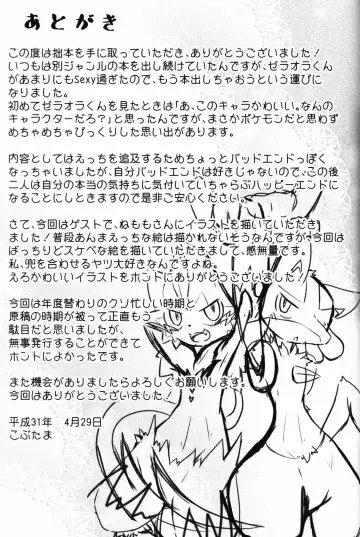 あとがき
この度は拙本を手に取っていただき、ありがとうございました！
いつもは別ジャンルの本を出し続けていたんですが、ゼラオラくん
があまりにもSexy過ぎたので、もう本出しちゃおうという運びに
なりました。
初めてゼラオラくんを見たときは「あ、このキャラかわいい。なんの
キャラクターだろ？」と思ったんですが、まさかポケモンだと思わず
めちゃめちゃびっくりした思い出があります。
内容としてはえっちを追及するためちょっとバッドエンドっぽく
なっちゃいましたが、自分バッドエンドは好きじゃないので、この後
二人は自分の本当の気持ちに気付いていちゃらぶハッピーエンド
になることにしときますので是非ご安心ください。
さて、今回はゲストで、ねももさんにイラストを描いていただき
ました！普段あんまえっちな絵は描かれないそうなんですが今回は
ばっちりどスケベな絵を描いていただきまして、感無量です。
私、兜を合わせるヤツ大好きなんですよね。
えろかわいいイラストをホントにありがとうございました！
今回は年度替わりのクソ忙しい時期と
原稿の時期が被って正直もう
駄目だと思いましたが、
無事発行することができて
ホントによかったです。
また機会がありましたらよろしくお願いします。
今回はありがとうございました！
平成31年　4月29日
こぶたま